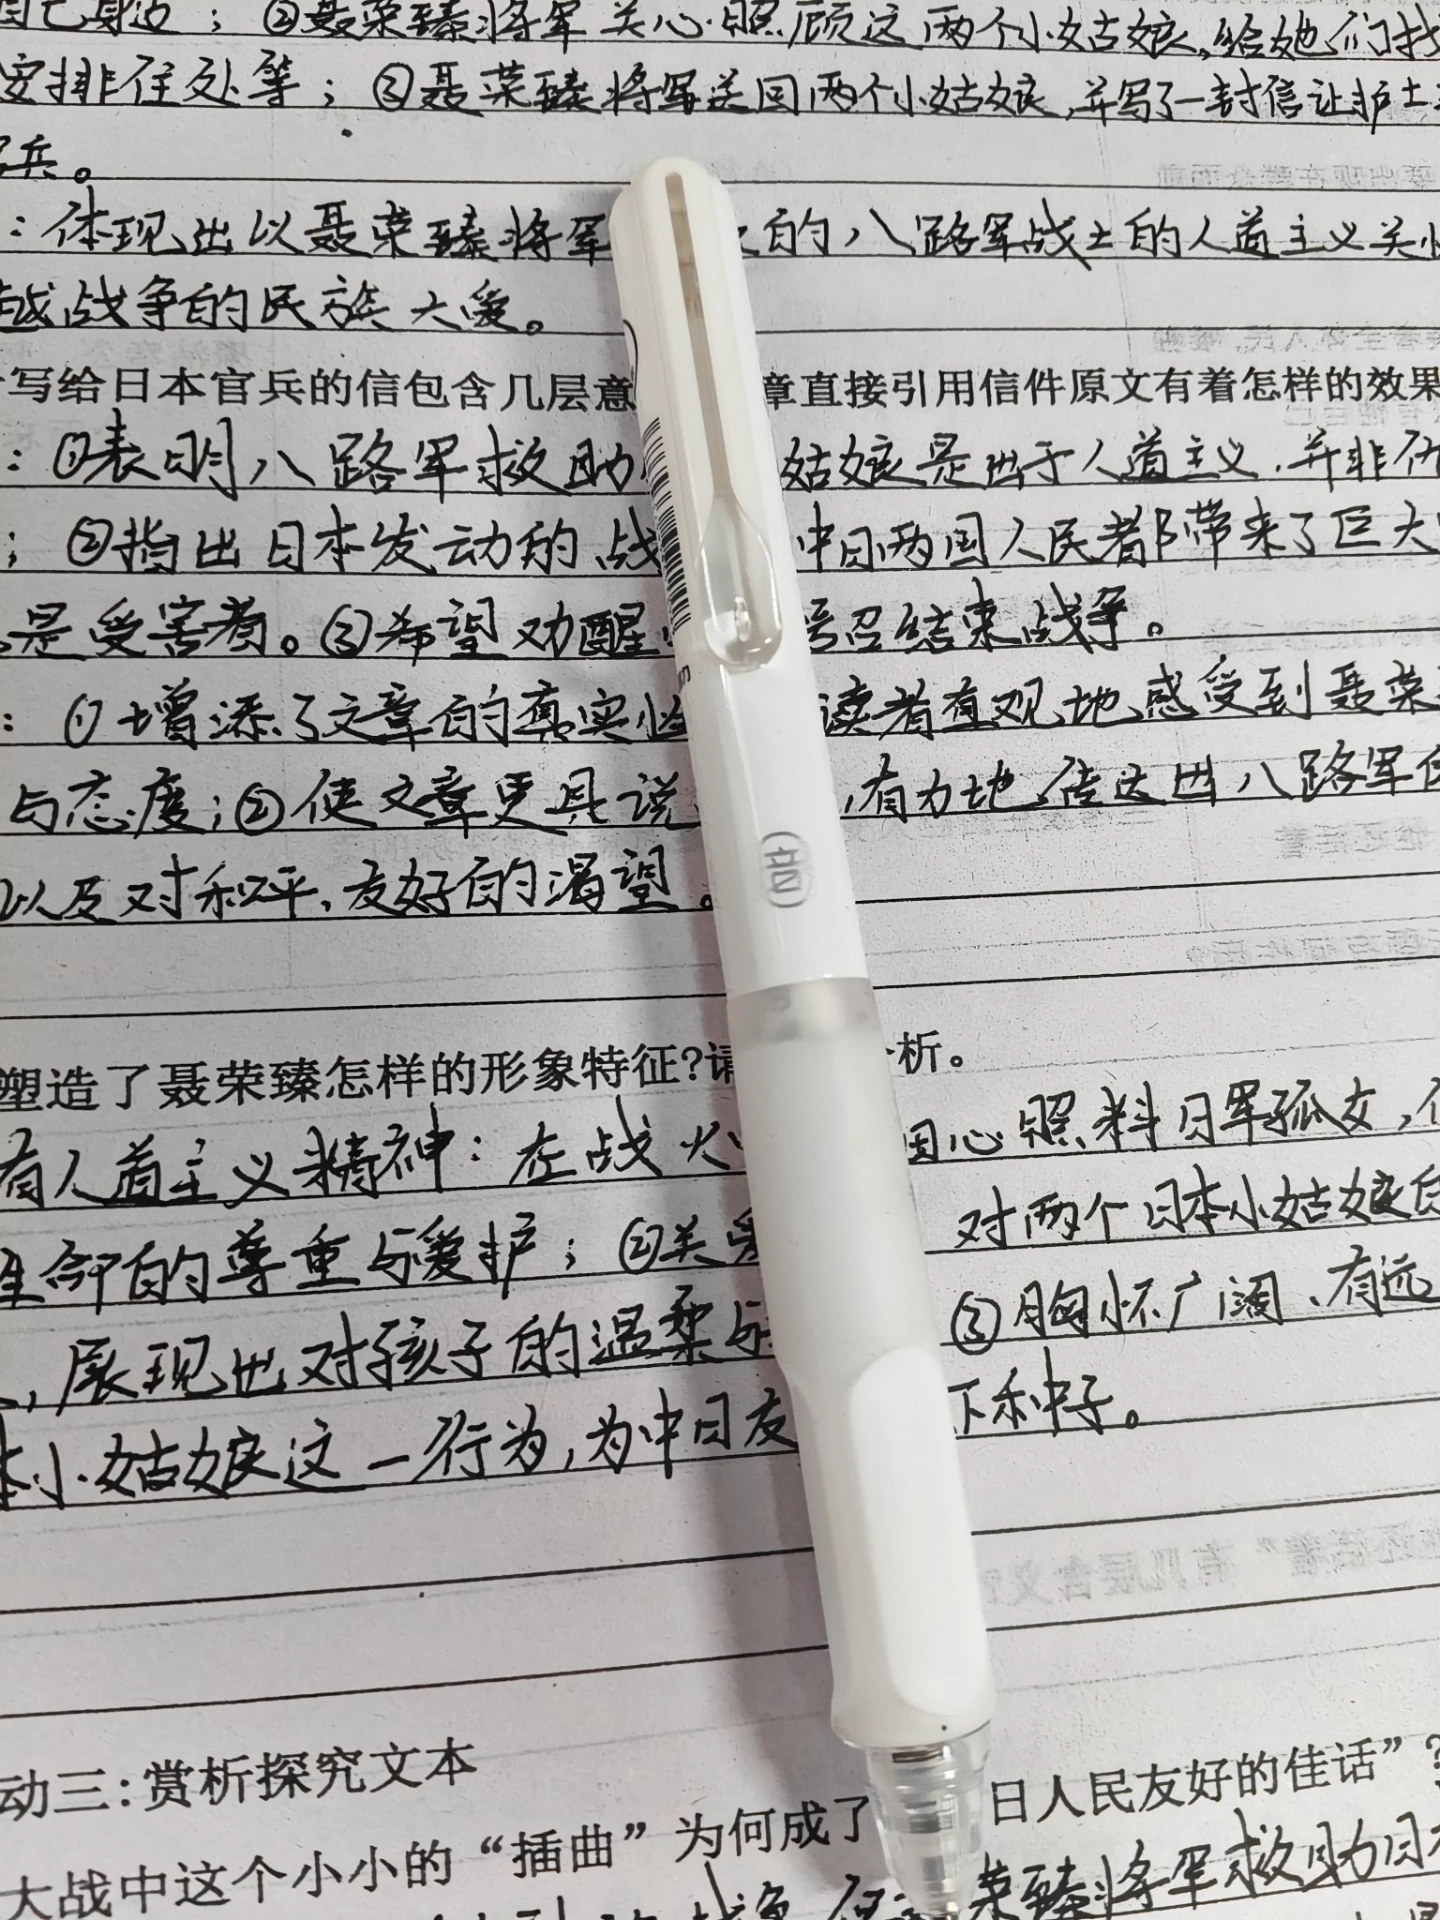 自己身边；②聂荣臻将军关心照顾这两个小姑娘，给她们找
安排住处等；③聂荣臻将军送回两个小姑娘，并写了一封信让护士
兵。
：体现出以聂荣臻将军 的八路军战士的人道主义关怀
越战争的民族大爱。
写给日本官兵的信包含几层意 章直接引用信件原文有着怎样的效果
：①表明八路军救助 姑娘是出于人道主义，并非仇
；②指出日本发动的战 中日两国人民都带来了巨大
是受害者。③希望劝醒 号召结束战争。
：①增添了文章的真实性 读者直观地感受到聂荣
与态度；②使文章更具说 ，有力地传达出八路军
以及对和平、友好的渴望。
塑造了聂荣臻怎样的形象特征?请 析。
有人道主义精神：在战火 心照料日军孤女，
生命的尊重与爱护；②关爱 对两个日本小姑娘
，展现出对孩子的温柔与 ③胸怀广阔、有远
本小姑娘这一行为，为中日友 下种子。
动三：赏析探究文本
大战中这个小小的“插曲”为何成了 日人民友好的佳话”?
荣臻将军救助日本